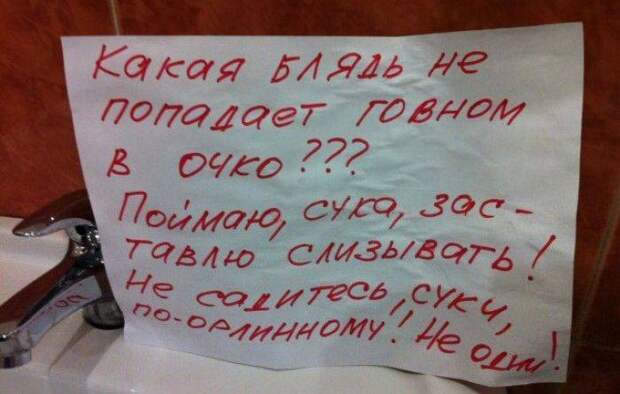 Какая блядь не
попадает говном
в очко ???
Поймаю, сука, зас-
тавлю слизывать!
Не садитесь, суки,
по-орлинному! Не одни!